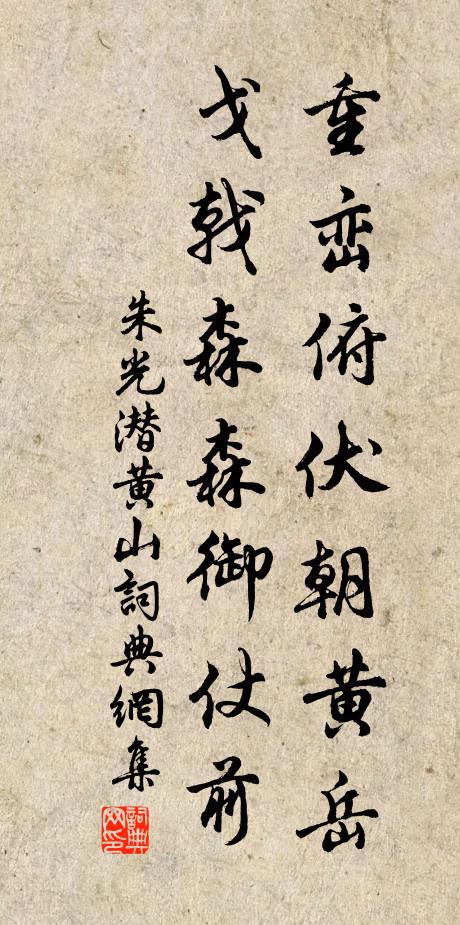 重峦俯伏朝黄岳
戈戟森森御仗前
朱光潜黄山詞典網集
詞典网印